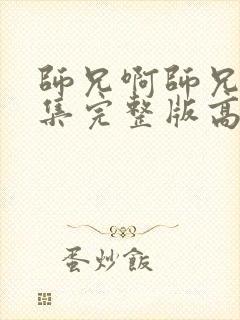 師兄啊師兄
集完整版高
蛋炒飯